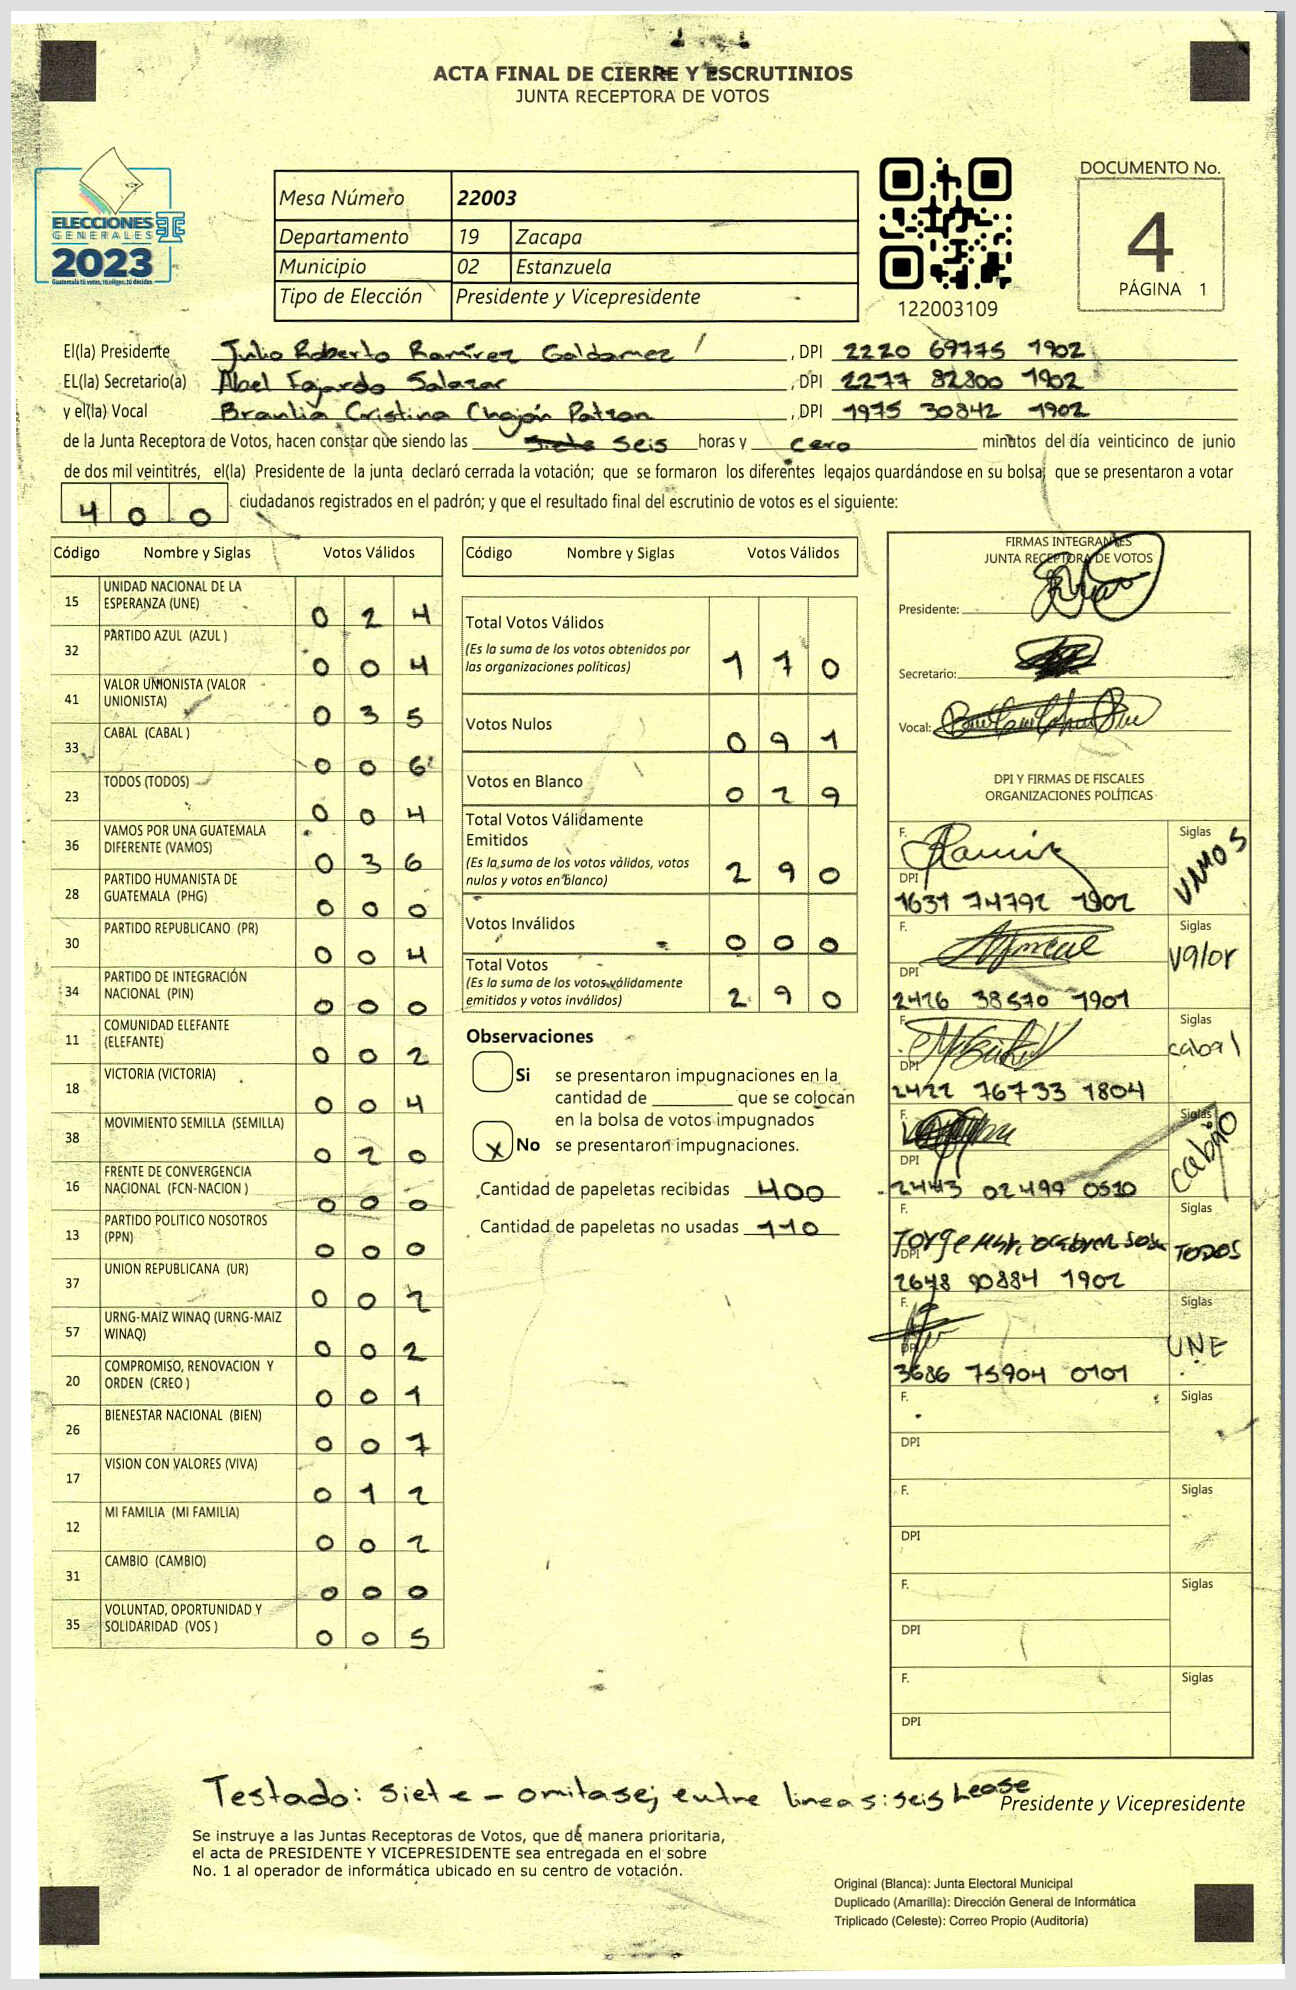 ACTA FINAL DE CIERRE Y ESCRUTINIOS
JUNTA RECEPTORA DE VOTOS
ELECCIONES
GENERALES
2023
Guatemala tú votas, tú eliges, tú decides
Mesa Número 22003
Departamento 19 Zacapa
Municipio 02 Estanzuela
Tipo de Elección Presidente y Vicepresidente
122003109
DOCUMENTO No.
4
PÁGINA 1
El(la) Presidente Julio Roberto Ramírez Galdamez , DPI 2220 69775 1902
EL(la) Secretario(a) Abel Fajardo Salazar , DPI 2277 82800 1902
y el(la) Vocal Braulia Cristina Chajón Patzan , DPI 1975 30842 1902
de la Junta Receptora de Votos, hacen constar que siendo las siete seis horas y cero minutos del día veinticinco de junio
de dos mil veintitrés, el(la) Presidente de la junta declaró cerrada la votación; que se formaron los diferentes legajos guardándose en su bolsa; que se presentaron a votar
400 ciudadanos registrados en el padrón; y que el resultado final del escrutinio de votos es el siguiente:
Código Nombre y Siglas Votos Válidos
15 UNIDAD NACIONAL DE LA ESPERANZA (UNE) 0 2 4
32 PARTIDO AZUL (AZUL ) 0 0 4
41 VALOR UNIONISTA (VALOR UNIONISTA) 0 3 5
33 CABAL (CABAL ) 0 0 6
23 TODOS (TODOS) 0 0 4
36 VAMOS POR UNA GUATEMALA DIFERENTE (VAMOS) 0 3 6
28 PARTIDO HUMANISTA DE GUATEMALA (PHG) 0 0 0
30 PARTIDO REPUBLICANO (PR) 0 0 4
34 PARTIDO DE INTEGRACIÓN NACIONAL (PIN) 0 0 0
11 COMUNIDAD ELEFANTE (ELEFANTE) 0 0 2
18 VICTORIA (VICTORIA) 0 0 4
38 MOVIMIENTO SEMILLA (SEMILLA) 0 2 0
16 FRENTE DE CONVERGENCIA NACIONAL (FCN-NACION ) 0 0 0
13 PARTIDO POLITICO NOSOTROS (PPN) 0 0 0
37 UNION REPUBLICANA (UR) 0 0 2
57 URNG-MAIZ WINAQ (URNG-MAIZ WINAQ) 0 0 2
20 COMPROMISO, RENOVACION Y ORDEN (CREO ) 0 0 1
26 BIENESTAR NACIONAL (BIEN) 0 0 7
17 VISION CON VALORES (VIVA) 0 1 2
12 MI FAMILIA (MI FAMILIA) 0 0 2
31 CAMBIO (CAMBIO) 0 0 0
35 VOLUNTAD, OPORTUNIDAD Y SOLIDARIDAD (VOS ) 0 0 5
Código Nombre y Siglas Votos Válidos
Total Votos Válidos 1 7 0
(Es la suma de los votos obtenidos por
las organizaciones políticas)
Votos Nulos 0 9 1
Votos en Blanco 0 2 9
Total Votos Válidamente
Emitidos 2 9 0
(Es la suma de los votos válidos, votos
nulos y votos en blanco)
Votos Inválidos 0 0 0
Total Votos 2 9 0
(Es la suma de los votos válidamente
emitidos y votos inválidos)
Observaciones
Si se presentaron impugnaciones en la
cantidad de ________ que se colocan
en la bolsa de votos impugnados
x No se presentaron impugnaciones.
Cantidad de papeletas recibidas 400
Cantidad de papeletas no usadas 110
FIRMAS INTEGRANTES
JUNTA RECEPTORA DE VOTOS
Presidente:
Secretario:
Vocal:
DPI Y FIRMAS DE FISCALES
ORGANIZACIONES POLÍTICAS
F. Ramir Siglas VAMOS
DPI
1631 74792 1902
F. Siglas Valor
DPI
2416 38570 1901
F. Siglas cabal
DPI
2422 76733 1804
F. Siglas
DPI
2443 02499 0510
F. Jorge Siglas TODOS
DPI
2648 90884 1902
F. Siglas UNE
DPI
3686 75904 0101
F. Siglas
DPI
F. Siglas
DPI
F. Siglas
DPI
F. Siglas
DPI
Testado: siete - omitase; entre lineas: seis Lease
Presidente y Vicepresidente
Se instruye a las Juntas Receptoras de Votos, que de manera prioritaria,
el acta de PRESIDENTE Y VICEPRESIDENTE sea entregada en el sobre
No. 1 al operador de informática ubicado en su centro de votación.
Original (Blanca): Junta Electoral Municipal
Duplicado (Amarilla): Dirección General de Informática
Triplicado (Celeste): Correo Propio (Auditoría)